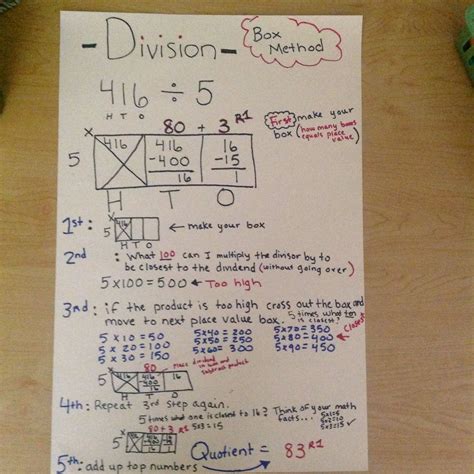 - Division -
Box Method
416 ÷ 5
H T O
80 + 3 R1
First make your box (how many boxes equals place value)
X
5
416
416
-400
16
16
-15
1
H T O
1st: 5 416 ← make your box
H T O
2nd: What 100 can I multiply the divisor by to
be closest to the dividend (without going over)
5x100=500 ← Too high
3rd: if the product is too high cross out the box and
move to next place value box. 5 times what ten is closest?
5 x 10 = 50 5x40= 200 5x70= 350
5 x 20 = 100 5x50= 250 5x80= 400 closest
5 x 30 = 150 5x60= 300 5x90= 450
80
5 416 416 -400 16 16
Place dividend in box and subtract product
4th: Repeat 3rd step again.
5 times what one is closest to 16? Think of your math facts...
5x1=5
5x2=10
5x3=15
80+3 R1 5x3=15
5
Quotient = 83 R1
5th: add up top numbers